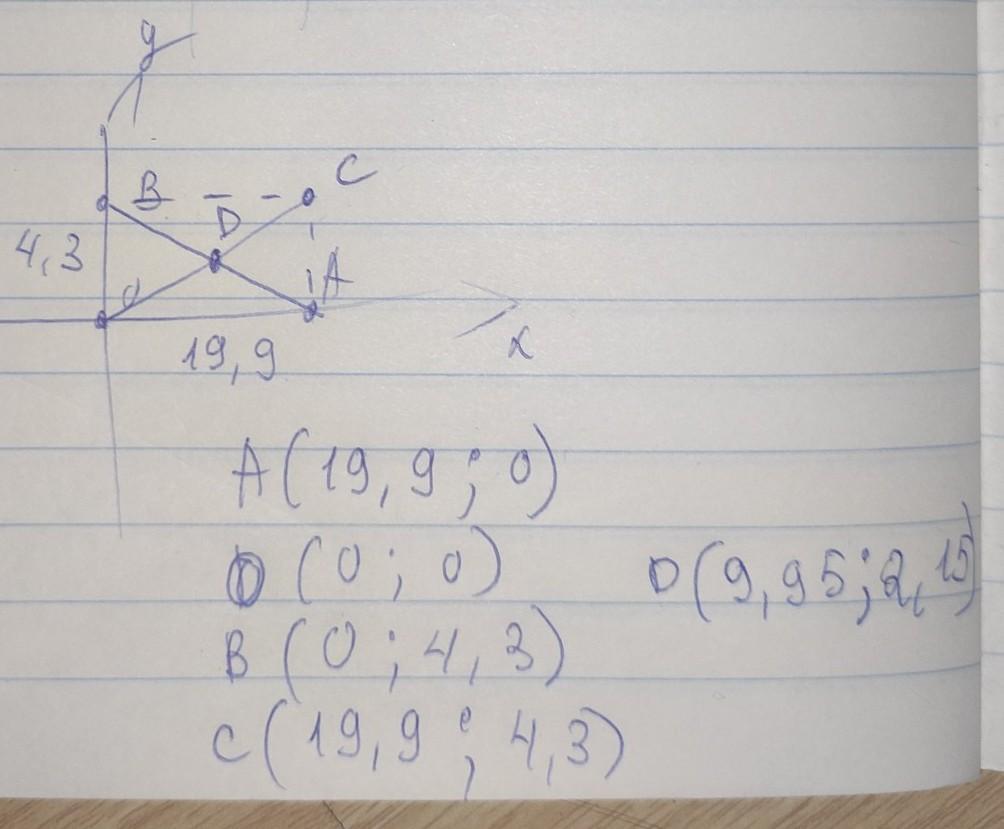 y
B C
D
4,3 A
0
19,9 x
A(19,9; 0)
O(0; 0) D(9,95; 2,15)
B(0; 4,3)
C(19,9; 4,3)